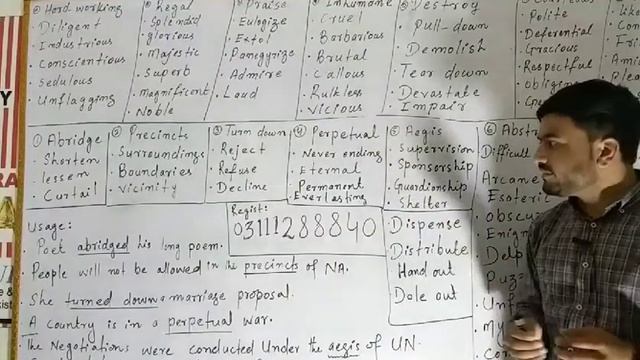 ② Hard working
Diligent
· Industrious
· Conscientious
· Sedulous
· Unflagging
② Regal
· Splendid
· glorious
· Majestic
· Superb
· Magnificent
· Noble
Praise
· Eulogize
· Extol
· Panegyrize
· Admire
· Laud
Inhumane
· Cruel
· Barbarious
· Brutal
· Callous
· Ruthless
· Vicious
Destroy
Pull-down
· Demolish
· Tear down
· Devastate
· Impair
Polite
· Deferential
· Gracious
· Respectful
① Abridge
· Shorten
· lessen
· Curtail
② Precincts
· Surroundings
· Boundaries
· Vicinity
③ Turn down
· Reject
· Refuse
· Decline
④ Perpetual
· Never ending
· Eternal
· Permanent
· Everlasting
⑤ Aegis
· Supervision
· Sponsorship
· Guardianship
· Shelter
Dispense
Distribute
Hand out
Dole out
⑥
Difficult
Arcane
Esoteric
Regist:
03111288840
Usage:
· Poet abridged his long poem.
· People will not be allowed in the precincts of NA.
· She turned down a marriage proposal.
· A country is in a perpetual war.
· The Negotiations were conducted Under the aegis of UN.